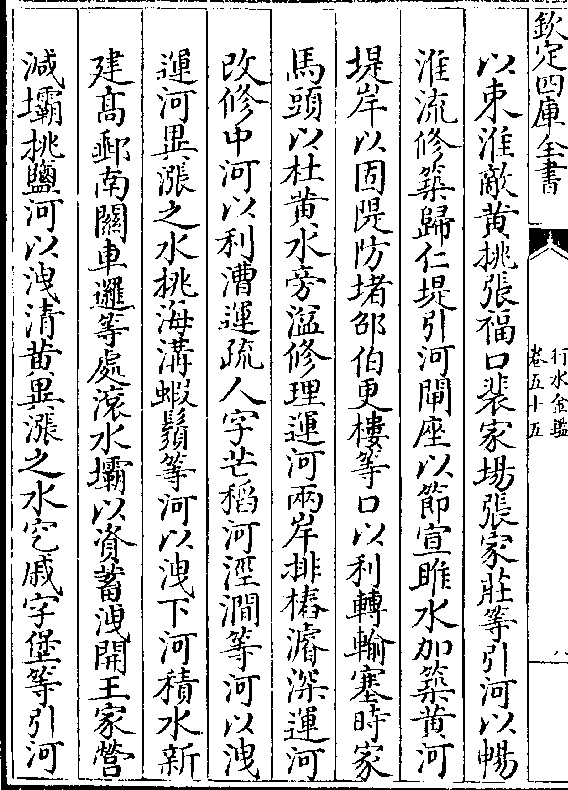 欽定四庫全書
行水金鑑
卷五十五
八
以束淮敵黄挑張福口裴家場張家莊等引河以暢
淮流修築歸仁堤引河閘座以節宣睢水加築黄河
堤岸以固隄防堵邵伯更樓等口以利轉輸塞時家
馬頭以杜黄水旁溢修理運河兩岸排樁濬深運河
改修中河以利漕運疏人字芒稻河涇澗等河以洩
運河異漲之水挑海溝蝦鬚等河以洩下河積水新
建髙郵南關車邏等處滚水壩以資蓄洩開王家營
減壩挑鹽河以洩清黄異漲之水定戚字堡等引河